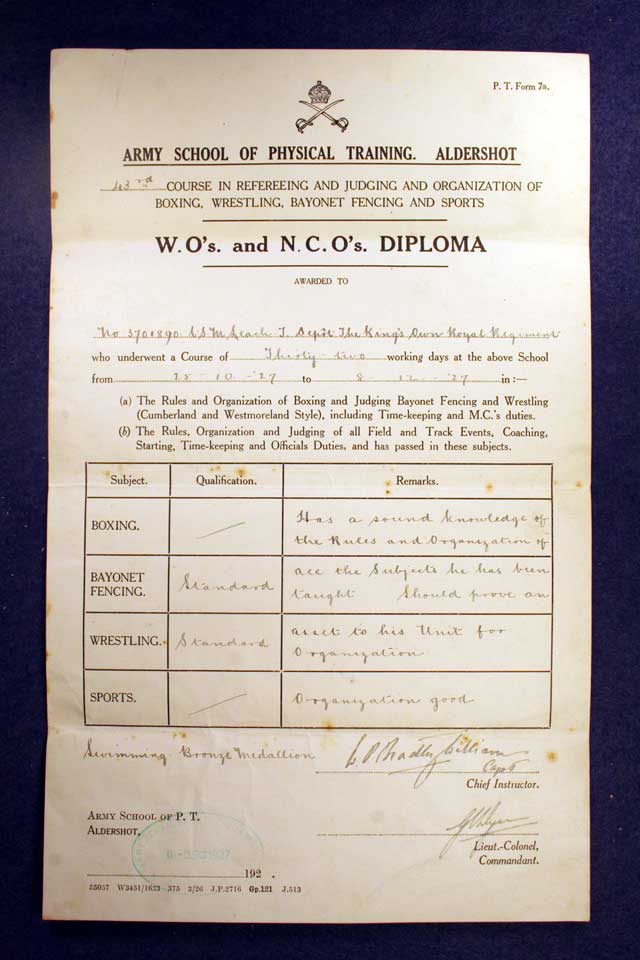 P. T. Form 7a.
ARMY SCHOOL OF PHYSICAL TRAINING. ALDERSHOT
43rd COURSE IN REFEREEING AND JUDGING AND ORGANIZATION OF
BOXING, WRESTLING, BAYONET FENCING AND SPORTS
W.O's. and N.C.O's. DIPLOMA
AWARDED TO
No 3701890 C S M Leach J. Depôt The King's Own Royal Regiment
who underwent a Course of Thirty two working days at the above School
from 25-10-'27 to 8-12-'27 in :—
(a) The Rules and Organization of Boxing and Judging Bayonet Fencing and Wrestling
(Cumberland and Westmoreland Style), including Time-keeping and M.C.'s duties.
(b) The Rules, Organization and Judging of all Field and Track Events, Coaching,
Starting, Time-keeping and Officials Duties, and has passed in these subjects.
Subject. Qualification. Remarks.
BOXING. — Has a sound knowledge of
the Rules and Organization of
BAYONET FENCING. Standard all the Subjects he has been
taught Should prove an
WRESTLING. Standard asset to his Unit for
Organization
SPORTS. — Organization good
Swimming Bronze Medallion
Capt
Chief Instructor.
ARMY SCHOOL OF P. T.
ALDERSHOT,
Lieut.-Colonel,
Commandant.
DEC 1927
192 .
55057 W3451/1623 375 3/26 J.P.2716 Gp.121 J.513